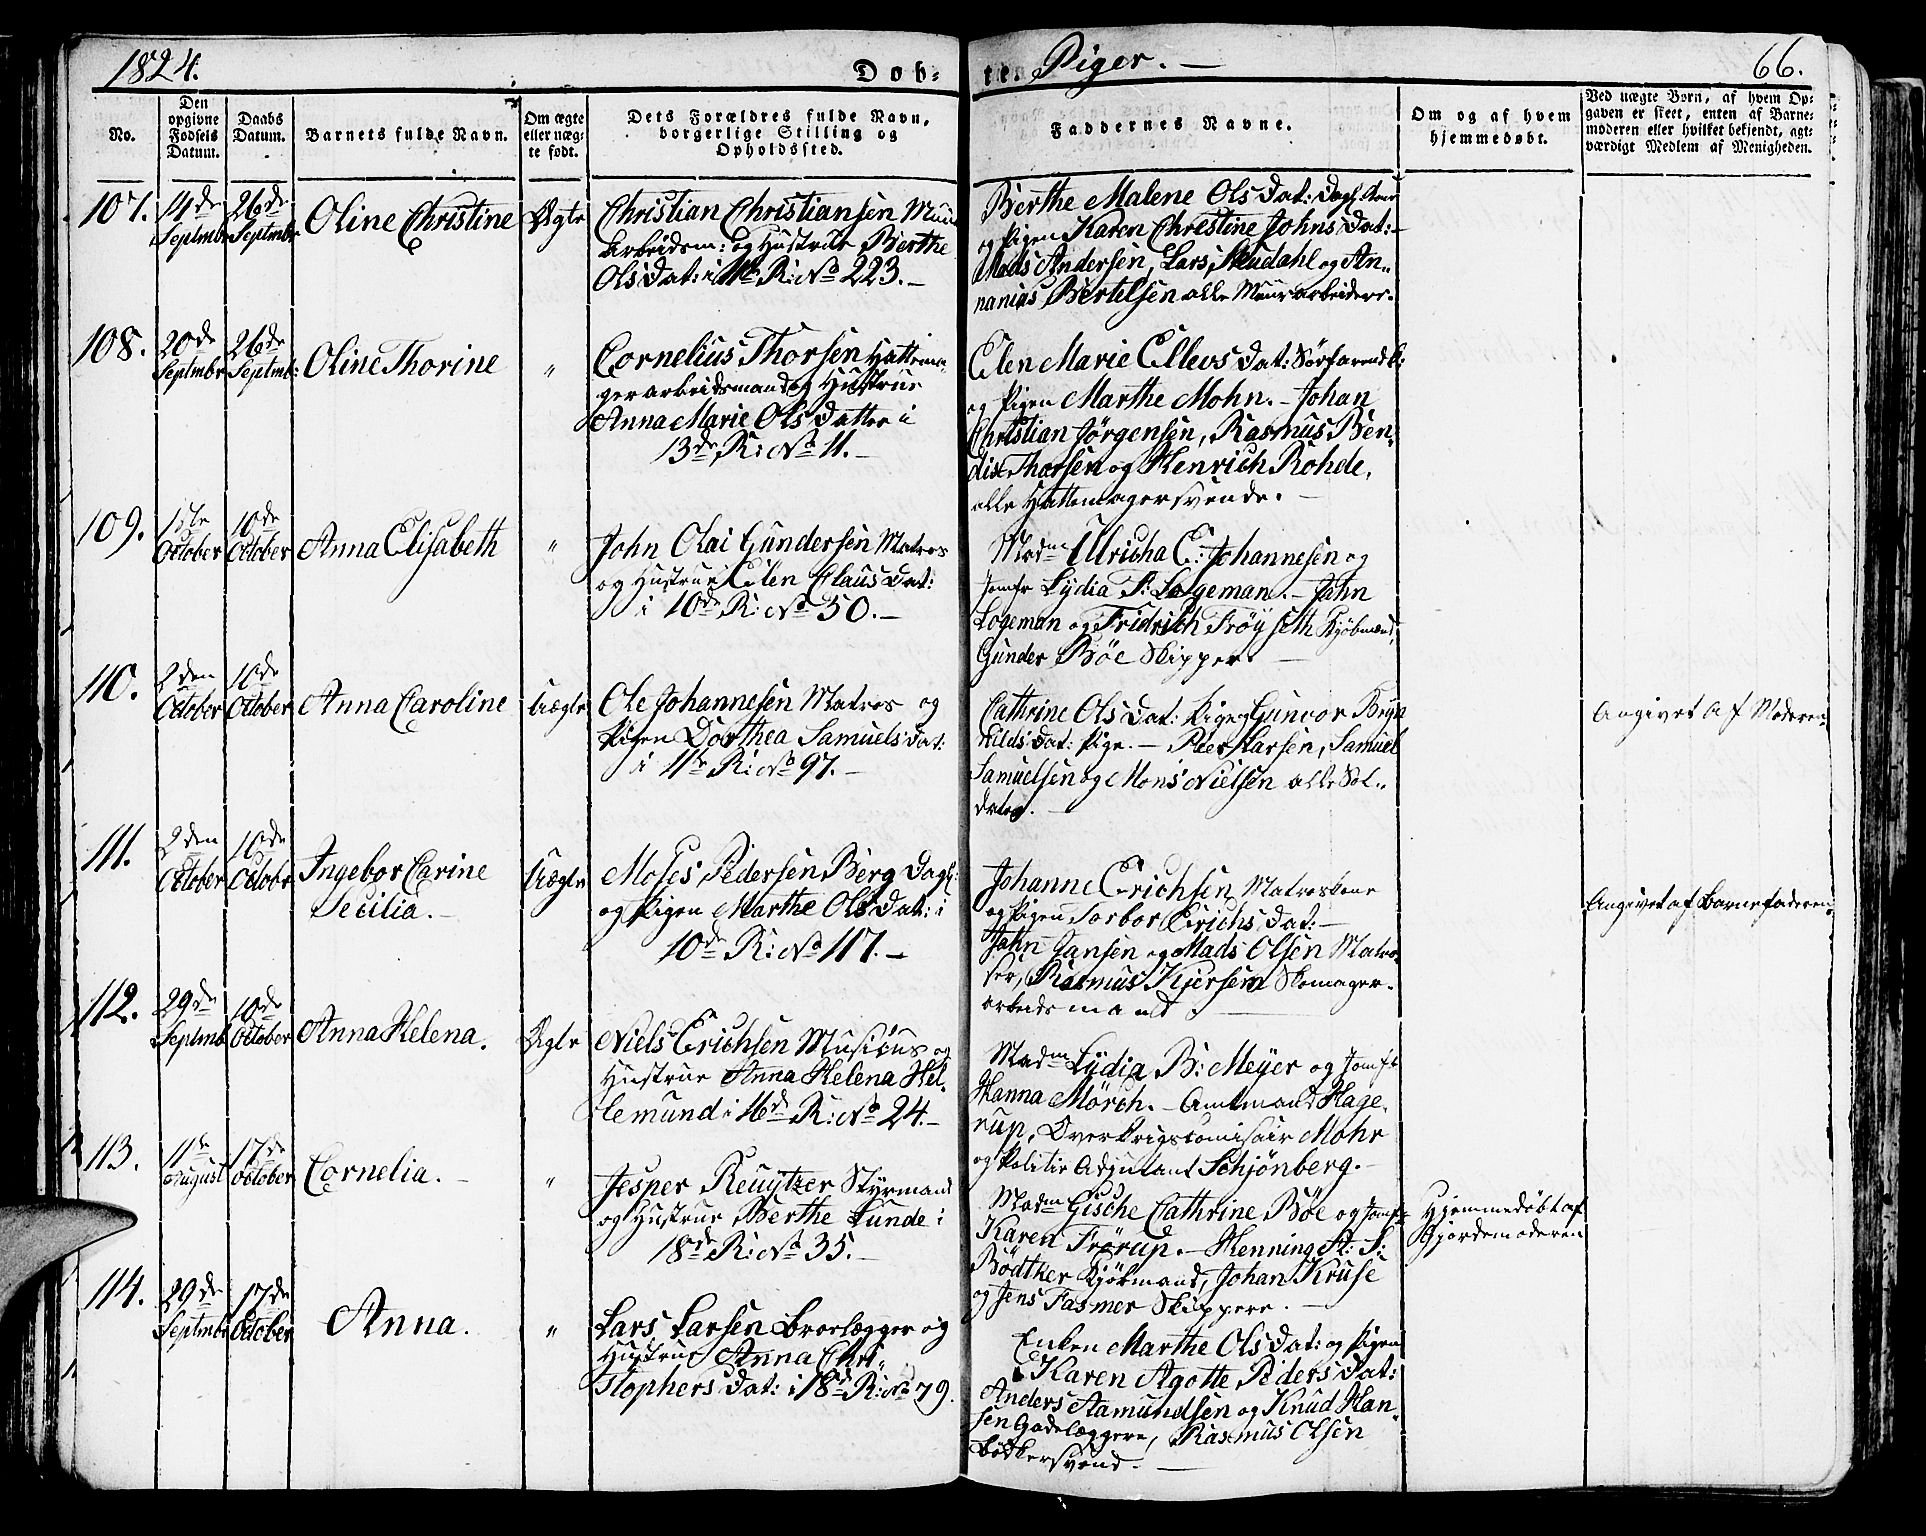 1824.
Døb-
te Piger. —
66.
No.
Den opgivne Fødsels Datum.
Daabs Datum.
Barnets fulde Navn.
Om ægte eller uægte født.
Dets Forældres fulde Navn, borgerlige Stilling og Opholdssted.
Faddernes Navne.
Om og af hvem hjemmedøbt.
Ved uægte Børn, af hvem Opgaven er skeet, enten af Barnemoderen eller hvilket bekjendt, agtværdigt Medlem af Menigheden.
107.
14de Septmbr
26de Septmbr
Oline Christine
Ægte
Christian Christiansen Muur
arbeidsm: og Hustrue Berthe
Ols Dat: i 11te R: No 223. —
Berthe Malene Ols Dat:
og Pigen Karen Christine Johns Dat: —
Mads Andersen, Lars Skudahl og An-
nanias Bertelsen alle Muurarbeidere.
108.
20de Septmbr
26de Septmb:
Oline Thorine
"
Cornelius Thorsen Hattema-
gerarbeidsmand og Hustrue
Anna Marie Ols Datter i
13de R: No 11. —
Elen Marie Ellevs Dat:
og Pigen Marthe Mohn. — Johan
Christian Jørgensen, Rasmus Ben-
dix Thorsen og Henrich Rohde,
alle Hattemagersvende. —
109.
1ste October
10de October
Anna Elisabeth
"
John Olai Gundersen Matros
og Hustrue Elen Claus Dat:
i 10de R: No 50. —
Madm Ulricha C: Johannesen og
Jomfr Lydia P: Logeman. — Jahn
Logeman og Fridrich Frøyseth Kjøbmænd,
Gunder Bøe Skipper. —
110.
2den October
10de October
Anna Caroline
Uægte
Ole Johannesen Matros og
Pigen Dorthea Samuels Dat:
i 11te R: No 97. —
Cathrine Ols Dat: Pige, Gunvor Bryn
hilds Dat: Pige. — Peer Larsen, Samuel
Samuelsen og Mons Nielsen alle Sol-
dater. —
Angivet af Moderen.
111.
2den October
10de Octobr
Ingebor Carine
Secilia. —
Uægte
Moses Pedersen Berg Dagl:
og Pigen Marthe Ols Dat: i
10de R: No 117. —
Johanne Erichsen, Matroskone
og Pigen Sorbor Erichs Dat: —
Jahn Jansen og Mads Olsen Matro-
ser, Rasmus Kjersem Skomager-
arbeidsmand —
Angivet af Barnefaderen.
112.
29de Septmb
10de October
Anna Helena.
Ægte
Niels Erichsen Musicus og
Hustrue Anna Helena Hel-
lemund i 16de R: No 24. —
Madm Lydia B: Meyer og Jomfr
Hanna Mørch. — Amtmand Hage-
rup, Overkrigscomisair Mohr
og Politie Adjutant Schjønberg. —
113.
11te August
17de October
Cornelia. —
"
Jesper Reuytzer Styrmand
og Hustrue Berthe Lunde i
18de R: No 35. —
Madm Gische Cathrine Bøe og Jomfr
Karen Frørup. — Henning St: S:
Bødtker Kjøbmand, Johan Kruse
og Jens Fasmer Skippere. —
Hjemmedøbt af
Gjordemoderen
114.
29de Septmbr
17de October
Anna.
"
Lars Larsen Broelægger og
Hustrue Anna Chri-
stophers Dat: i 18de R: No 79.
Enken Marthe Ols Dat: og Pigen
Karen Agotte Peders Dat:
Anders Aamundsen og Knud Han-
sen Gadelæggere, Rasmus Olsen
Bødkersvend. —